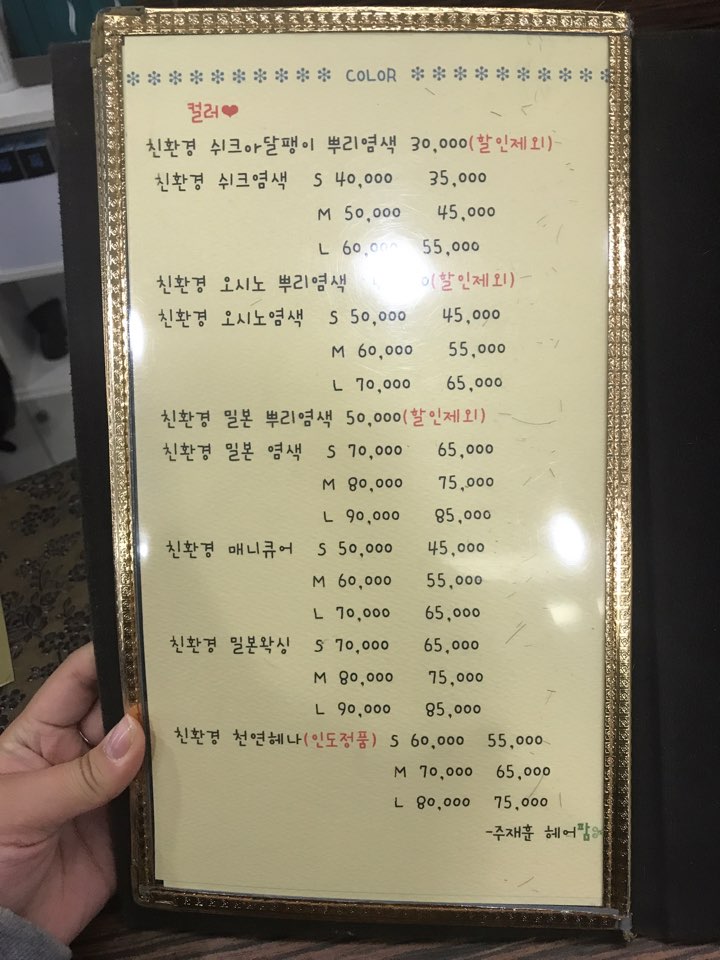 COLOR
컬러❤
친환경 쉬크아달팽이 뿌리염색 30,000(할인제외)
친환경 쉬크염색 S 40,000 35,000
M 50,000 45,000
L 60,000 55,000
친환경 오시노 뿌리염색 (할인제외)
친환경 오시노염색 S 50,000 45,000
M 60,000 55,000
L 70,000 65,000
친환경 밀본 뿌리염색 50,000(할인제외)
친환경 밀본 염색 S 70,000 65,000
M 80,000 75,000
L 90,000 85,000
친환경 매니큐어 S 50,000 45,000
M 60,000 55,000
L 70,000 65,000
친환경 밀본왁싱 S 70,000 65,000
M 80,000 75,000
L 90,000 85,000
친환경 천연헤나(인도정품) S 60,000 55,000
M 70,000 65,000
L 80,000 75,000
-주재훈 헤어팜